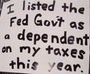 I listed the
Fed Gov't as
a dependent
on my taxes
this year.